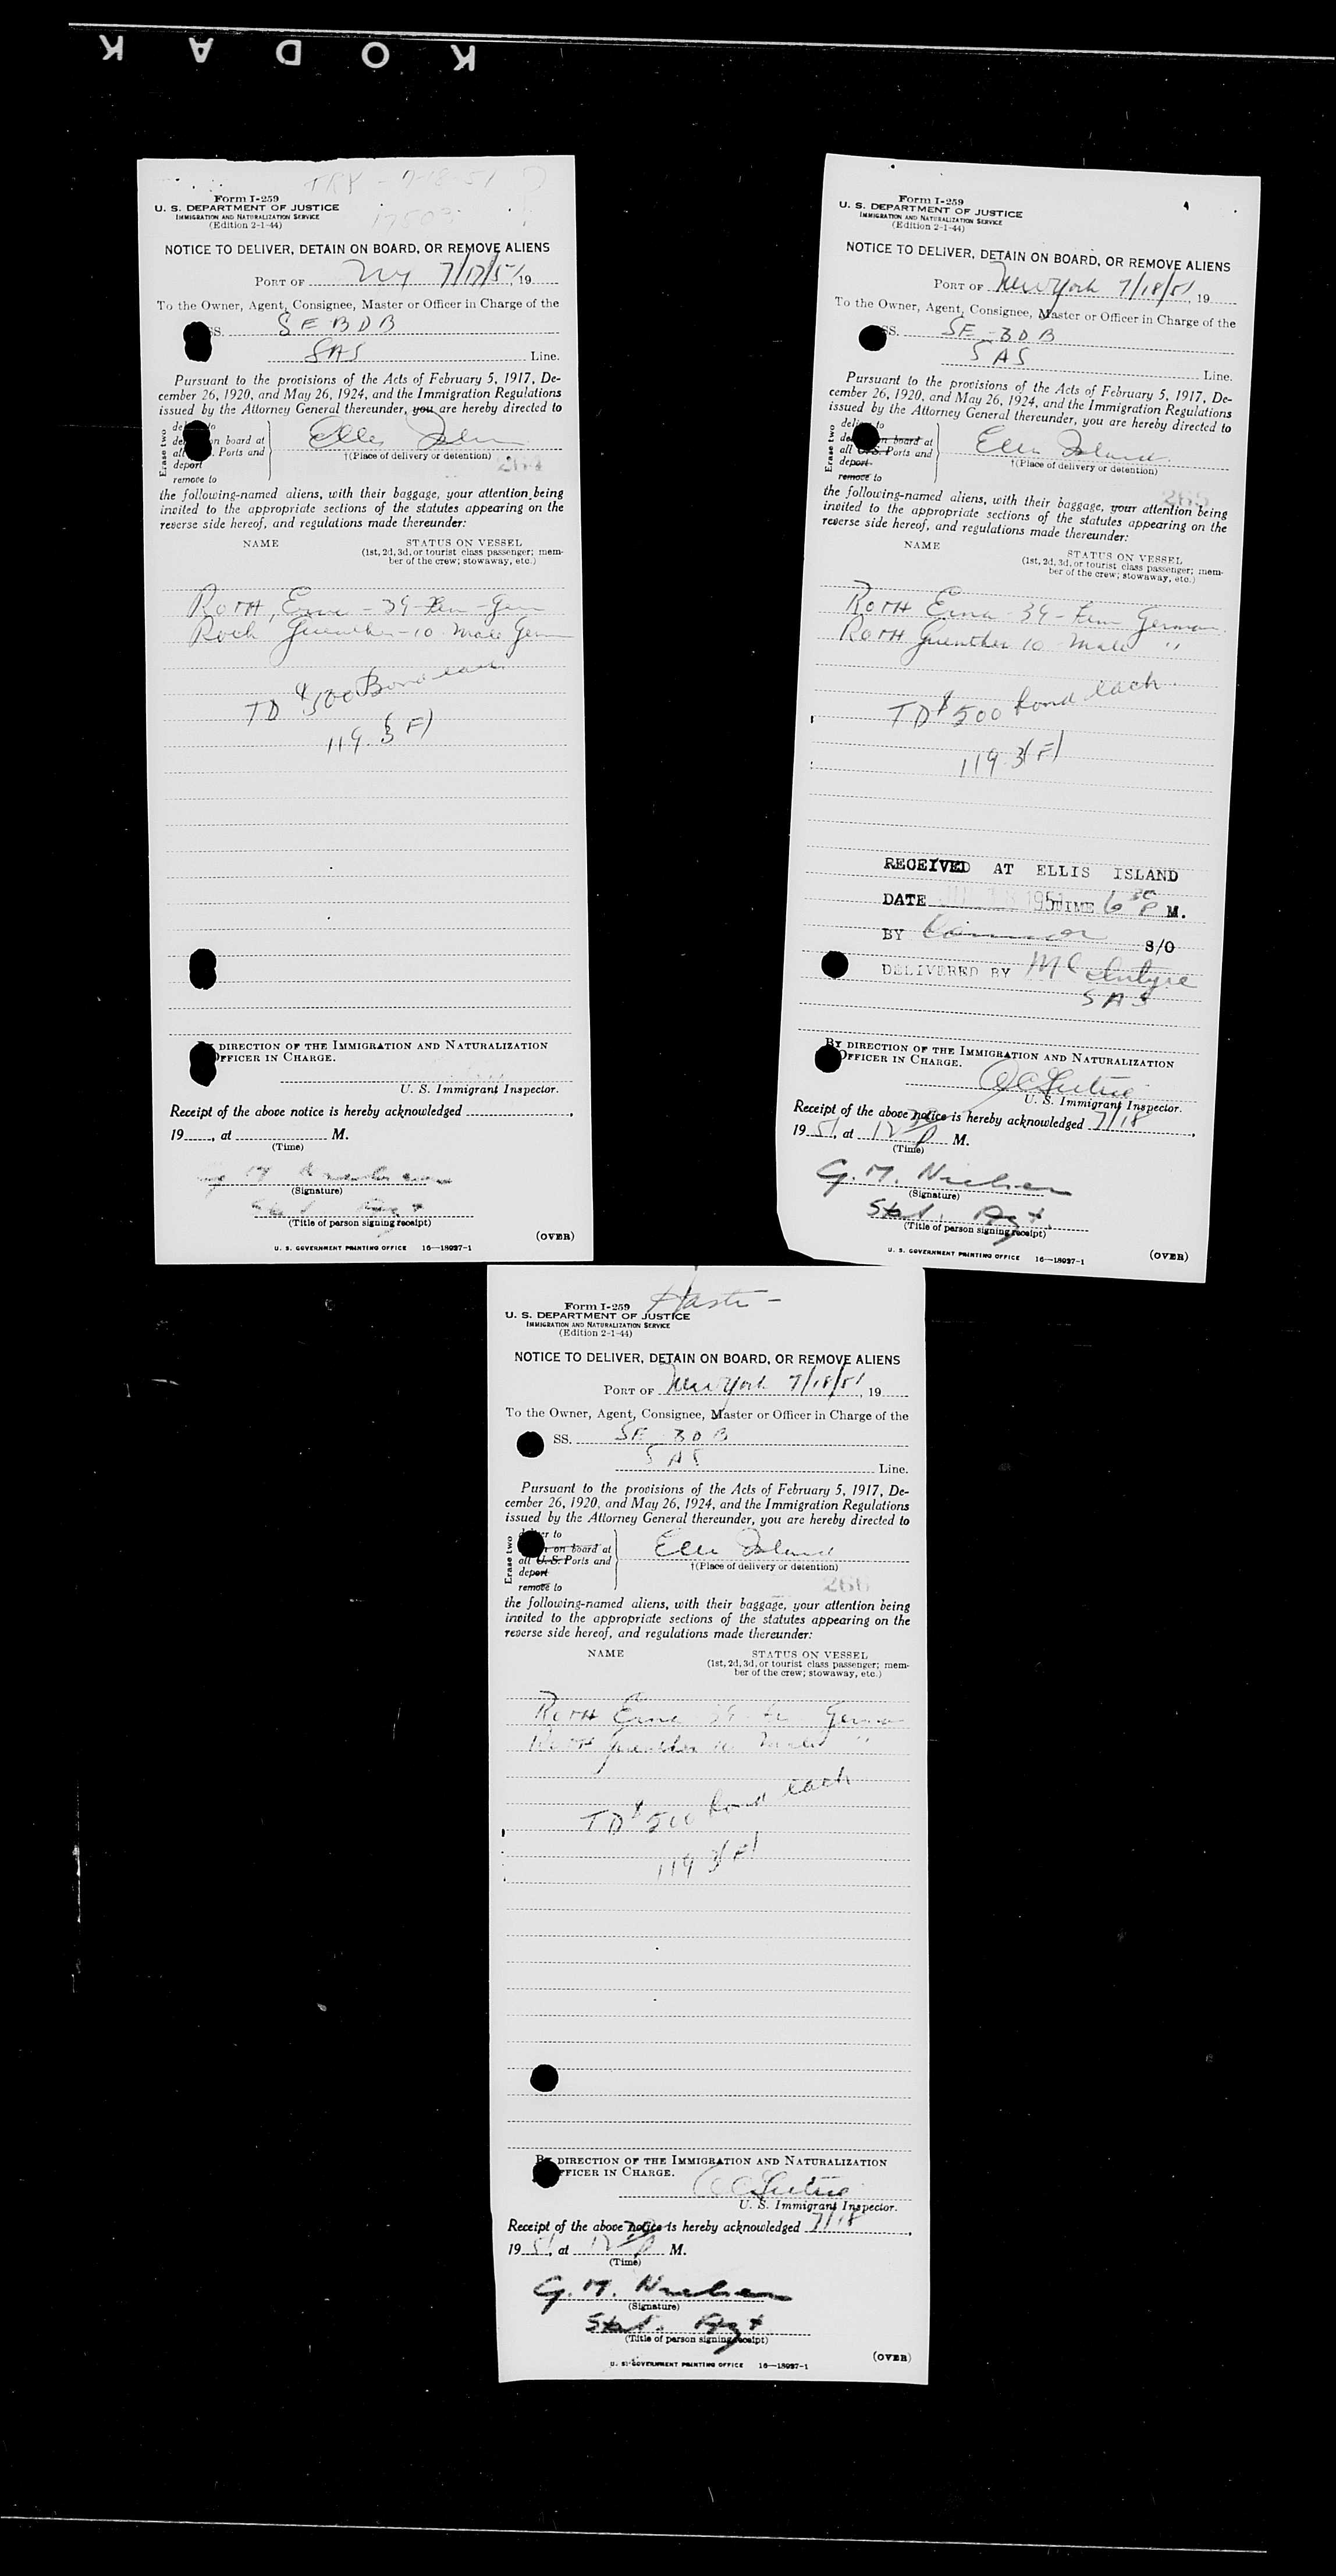 KODAK
TRX - 7-18-51
17503
Form I-259
U. S. DEPARTMENT OF JUSTICE
IMMIGRATION AND NATURALIZATION SERVICE
(Edition 2-1-44)
NOTICE TO DELIVER, DETAIN ON BOARD, OR REMOVE ALIENS
PORT OF NY 7/17/51, 19
To the Owner, Agent, Consignee, Master or Officer in Charge of the
SS. SE BDB
SAS Line.
Pursuant to the provisions of the Acts of February 5, 1917, De-
cember 26, 1920, and May 26, 1924, and the Immigration Regulations
issued by the Attorney General thereunder, you are hereby directed to
Erase two
to
on board at
all Ports and
deport
remove to
Ellis Island
†(Place of delivery or detention)
264
the following-named aliens, with their baggage, your attention being
invited to the appropriate sections of the statutes appearing on the
reverse side hereof, and regulations made thereunder:
NAME STATUS ON VESSEL
(1st, 2d, 3d, or tourist class passenger; mem-
ber of the crew; stowaway, etc.)
ROTH, Erna - 39 - Fem - Ger
Roth Guenther - 10 Male Ger
TD $500 Bond each
119.3(F)
BY DIRECTION OF THE IMMIGRATION AND NATURALIZATION
OFFICER IN CHARGE.
U. S. Immigrant Inspector.
Receipt of the above notice is hereby acknowledged
19, at M.
(Time)
G. M. Nielsen
(Signature)
Stat. Agt
(Title of person signing receipt)
(OVER)
U. S. GOVERNMENT PRINTING OFFICE 16—18927-1
Form I-259
U. S. DEPARTMENT OF JUSTICE
IMMIGRATION AND NATURALIZATION SERVICE
(Edition 2-1-44)
NOTICE TO DELIVER, DETAIN ON BOARD, OR REMOVE ALIENS
PORT OF New York 7/18/51, 19
To the Owner, Agent, Consignee, Master or Officer in Charge of the
SS. SE-BDB
SAS Line.
Pursuant to the provisions of the Acts of February 5, 1917, De-
cember 26, 1920, and May 26, 1924, and the Immigration Regulations
issued by the Attorney General thereunder, you are hereby directed to
Erase two
deliver to
on board at
all U.S. Ports and
deport
remove to
Ellis Island
†(Place of delivery or detention)
265
the following-named aliens, with their baggage, your attention being
invited to the appropriate sections of the statutes appearing on the
reverse side hereof, and regulations made thereunder:
NAME STATUS ON VESSEL
(1st, 2d, 3d, or tourist class passenger; mem-
ber of the crew; stowaway, etc.)
ROTH Erna 39 - Fem German
ROTH Guenther 10 Male "
TD $500 bond each
119.3(F)
RECEIVED AT ELLIS ISLAND
DATE 18 1951 TIME 6 30 P M.
BY S/O
DELIVERED BY McIntyre
SAS
BY DIRECTION OF THE IMMIGRATION AND NATURALIZATION
OFFICER IN CHARGE.
U. S. Immigrant Inspector.
Receipt of the above notice is hereby acknowledged 7/18,
19 51, at 12 P M.
(Time)
G. M. Nielsen
(Signature)
Stat. Agt.
(Title of person signing receipt)
(OVER)
U. S. GOVERNMENT PRINTING OFFICE 16—18927-1
Haste -
Form I-259
U. S. DEPARTMENT OF JUSTICE
IMMIGRATION AND NATURALIZATION SERVICE
(Edition 2-1-44)
NOTICE TO DELIVER, DETAIN ON BOARD, OR REMOVE ALIENS
PORT OF New York 7/18/51, 19
To the Owner, Agent, Consignee, Master or Officer in Charge of the
SS. SE BDB
SAS Line.
Pursuant to the provisions of the Acts of February 5, 1917, De-
cember 26, 1920, and May 26, 1924, and the Immigration Regulations
issued by the Attorney General thereunder, you are hereby directed to
Erase two
deliver to
on board at
all U.S. Ports and
deport
remove to
Ellis Island
†(Place of delivery or detention)
266
the following-named aliens, with their baggage, your attention being
invited to the appropriate sections of the statutes appearing on the
reverse side hereof, and regulations made thereunder:
NAME STATUS ON VESSEL
(1st, 2d, 3d, or tourist class passenger; mem-
ber of the crew; stowaway, etc.)
ROTH Erna 39 fem German
ROTH Guenther 10 Male "
TD $500 bond each
119 3(F)
BY DIRECTION OF THE IMMIGRATION AND NATURALIZATION
OFFICER IN CHARGE.
U. S. Immigrant Inspector.
Receipt of the above notice is hereby acknowledged 7/18,
19 51, at 12 P M.
(Time)
G. M. Nielsen
(Signature)
Stat. Agt
(Title of person signing receipt)
(OVER)
U. S. GOVERNMENT PRINTING OFFICE 16—18927-1